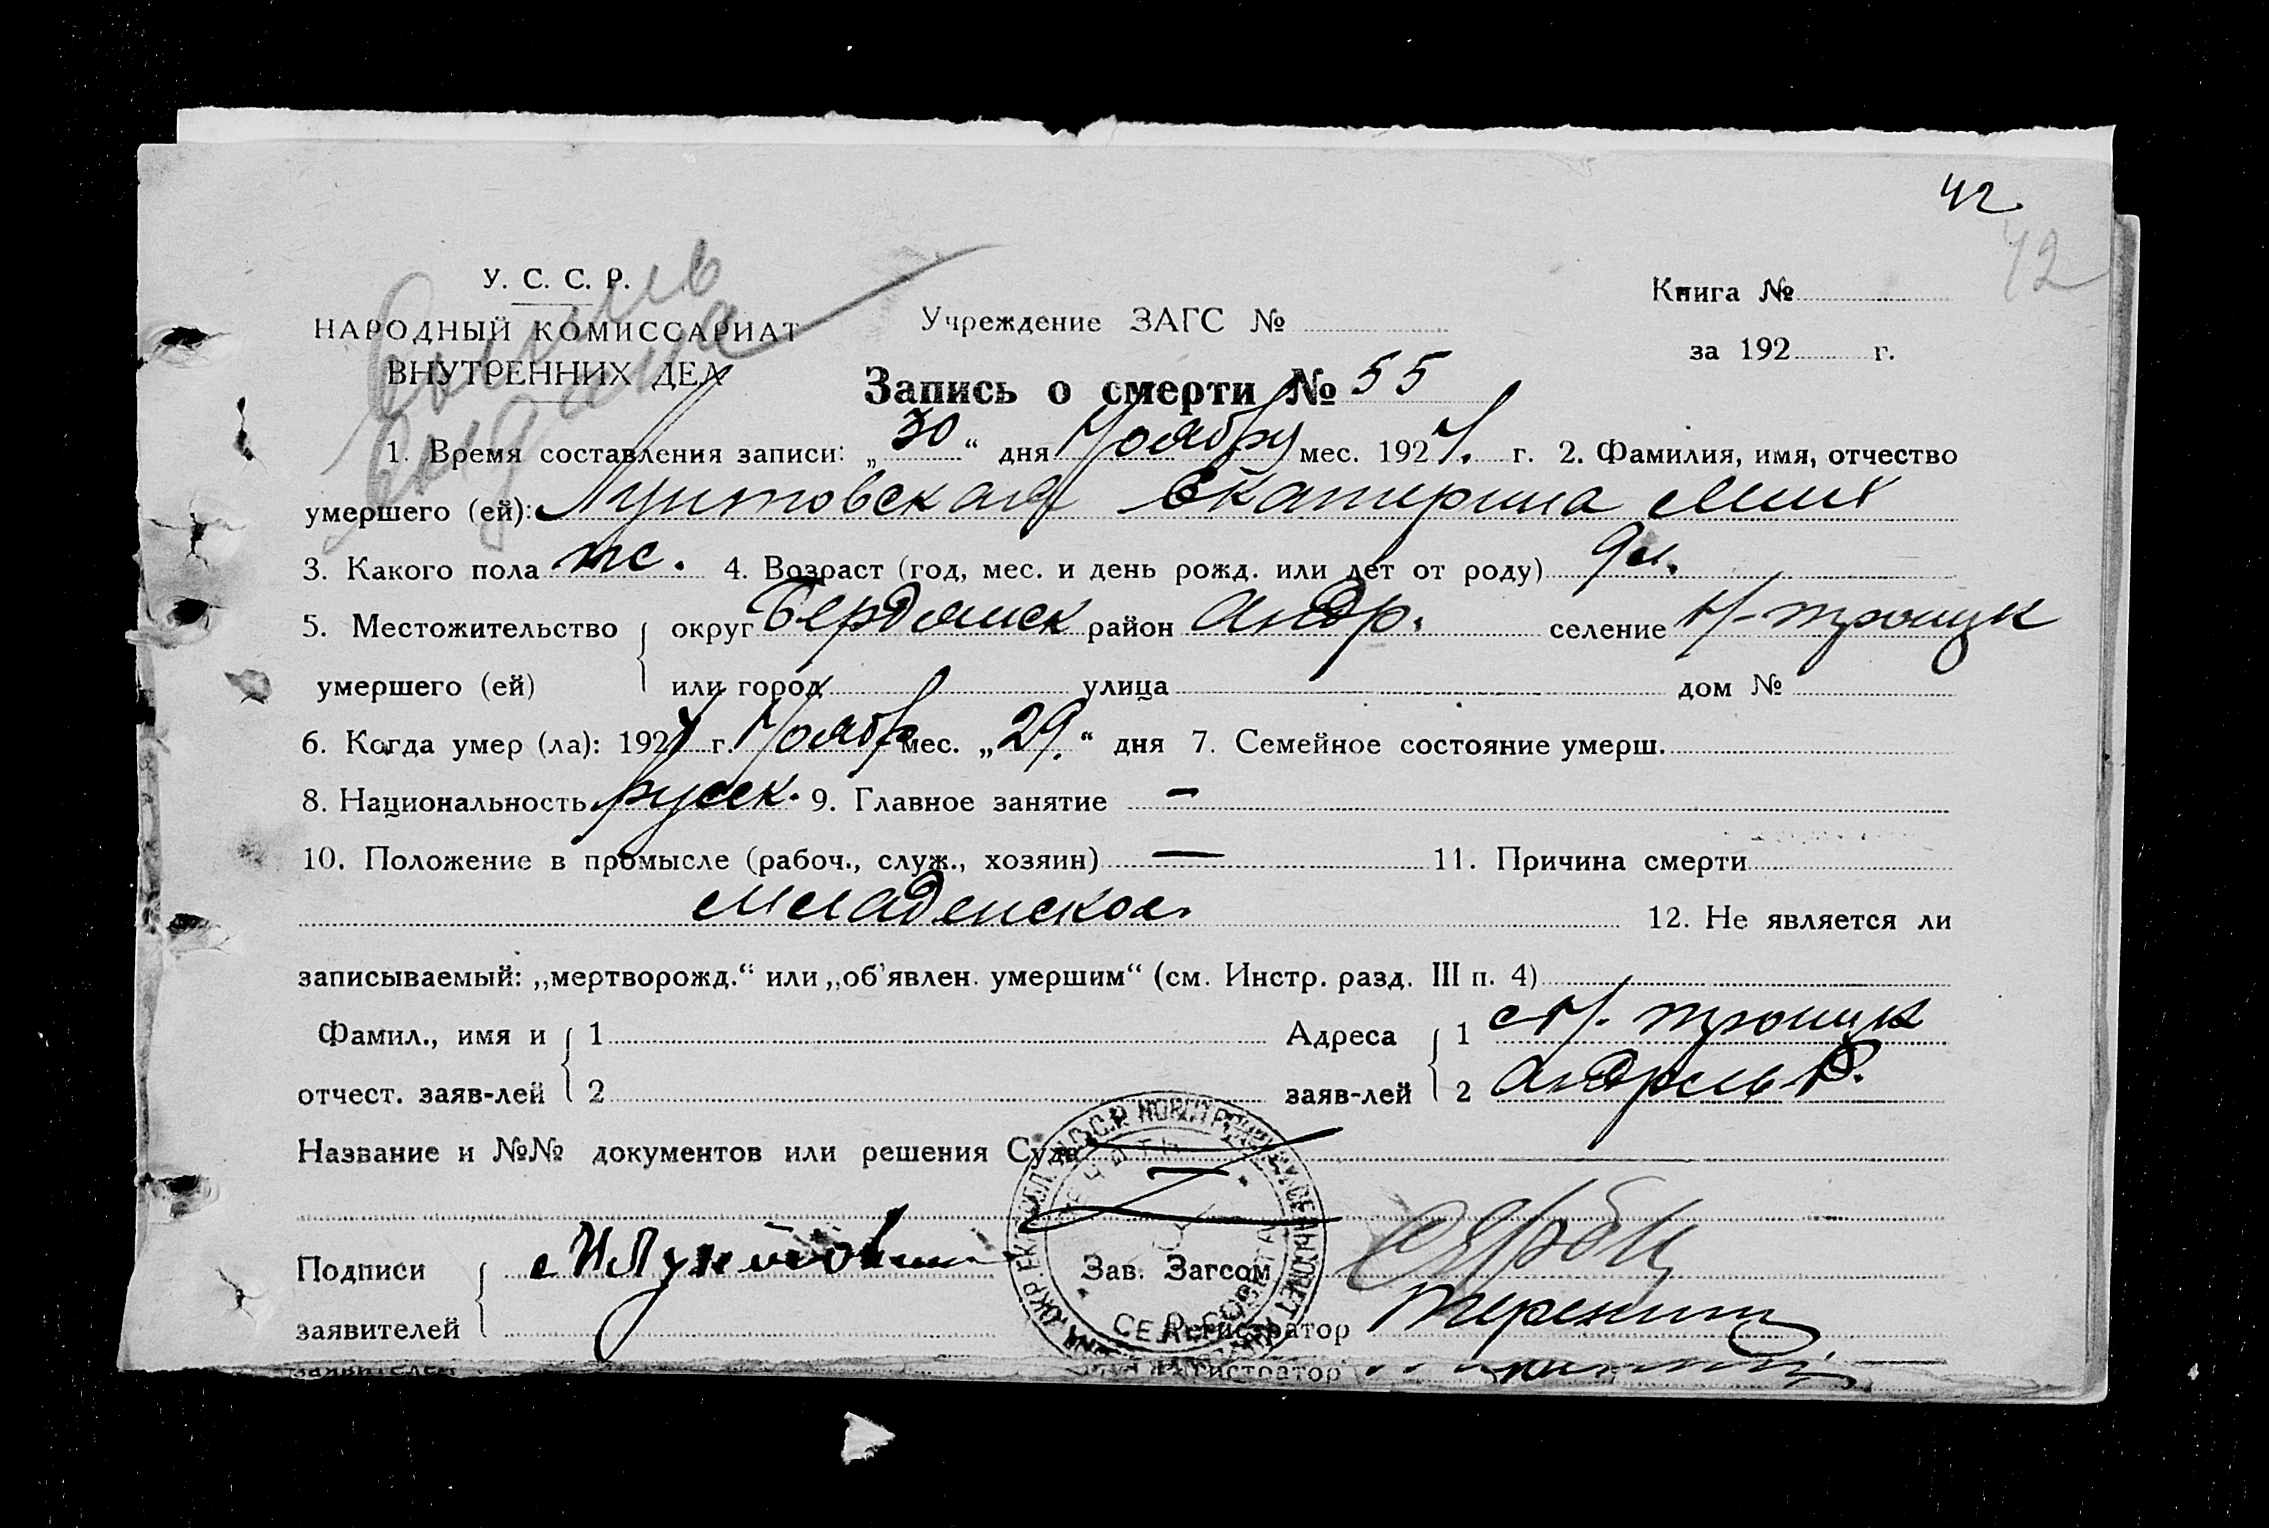 42
42
У. С. С. Р.
НАРОДНЫЙ КОМИССАРИАТ
ВНУТРЕННИХ ДЕЛ
Выпись
выдана
Учреждение ЗАГС №
Книга №
за 192 г.
Запись о смерти № 55
1. Время составления записи: „30“ дня Ноябр мес. 192 г. 2. Фамилия, имя, отчество
умершего (ей): Екатерина Мих
3. Какого пола ж. 4. Возраст (год, мес. и день рожд. или лет от роду)
5. Местожительство округ Бердянск район Андр. селение Н-троицк
умершего (ей) или город улица дом №
6. Когда умер (ла): 192 г. Ноябр мес. „29.“ дня 7. Семейное состояние умерш.
8. Национальность русск. 9. Главное занятие —
10. Положение в промысле (рабоч., служ., хозяин) — 11. Причина смерти
Младенская 12. Не является ли
записываемый: „мертворожд.“ или „об'явлен. умершим“ (см. Инстр. разд. III п. 4)
Фамил., имя и 1 Адреса 1 с Н. троицк
отчест. заяв-лей 2 заяв-лей 2 Р.
Название и №№ документов или решения Суда
Подписи Зав. Загсом
заявителей Регистратор
заявителей Регистратор